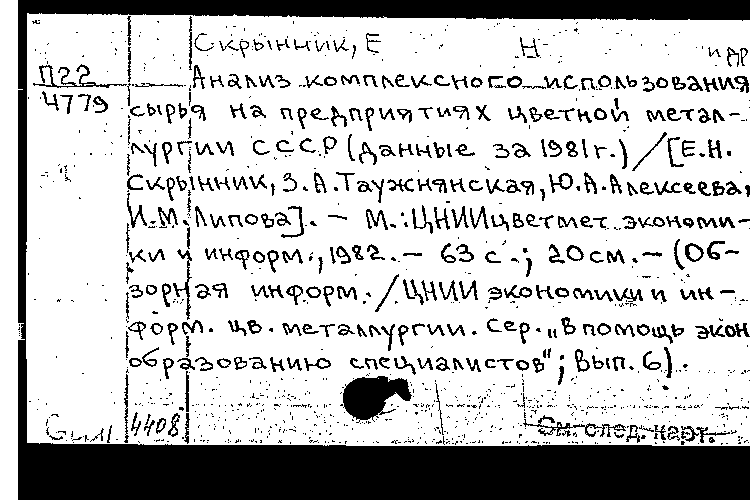 Скрынник, Е Н и др
П22
4779
Анализ комплексного использования
сырья на предприятиях цветной метал-
лургии СССР (данные за 1981г.) / [Е.Н.
Скрынник, З.А.Таужнянская, Ю.А.Алексеева,
И.М.Липова]. — М.: ЦНИИцветмет экономи-
ки и информ., 1982. — 63 с.; 20см. — (Об-
зорная информ. / ЦНИИ экономики и ин-
форм. цв. металлургии. Сер. „В помощь экон
образованию специалистов"; Вып. 6).
4408
См. след. карт.